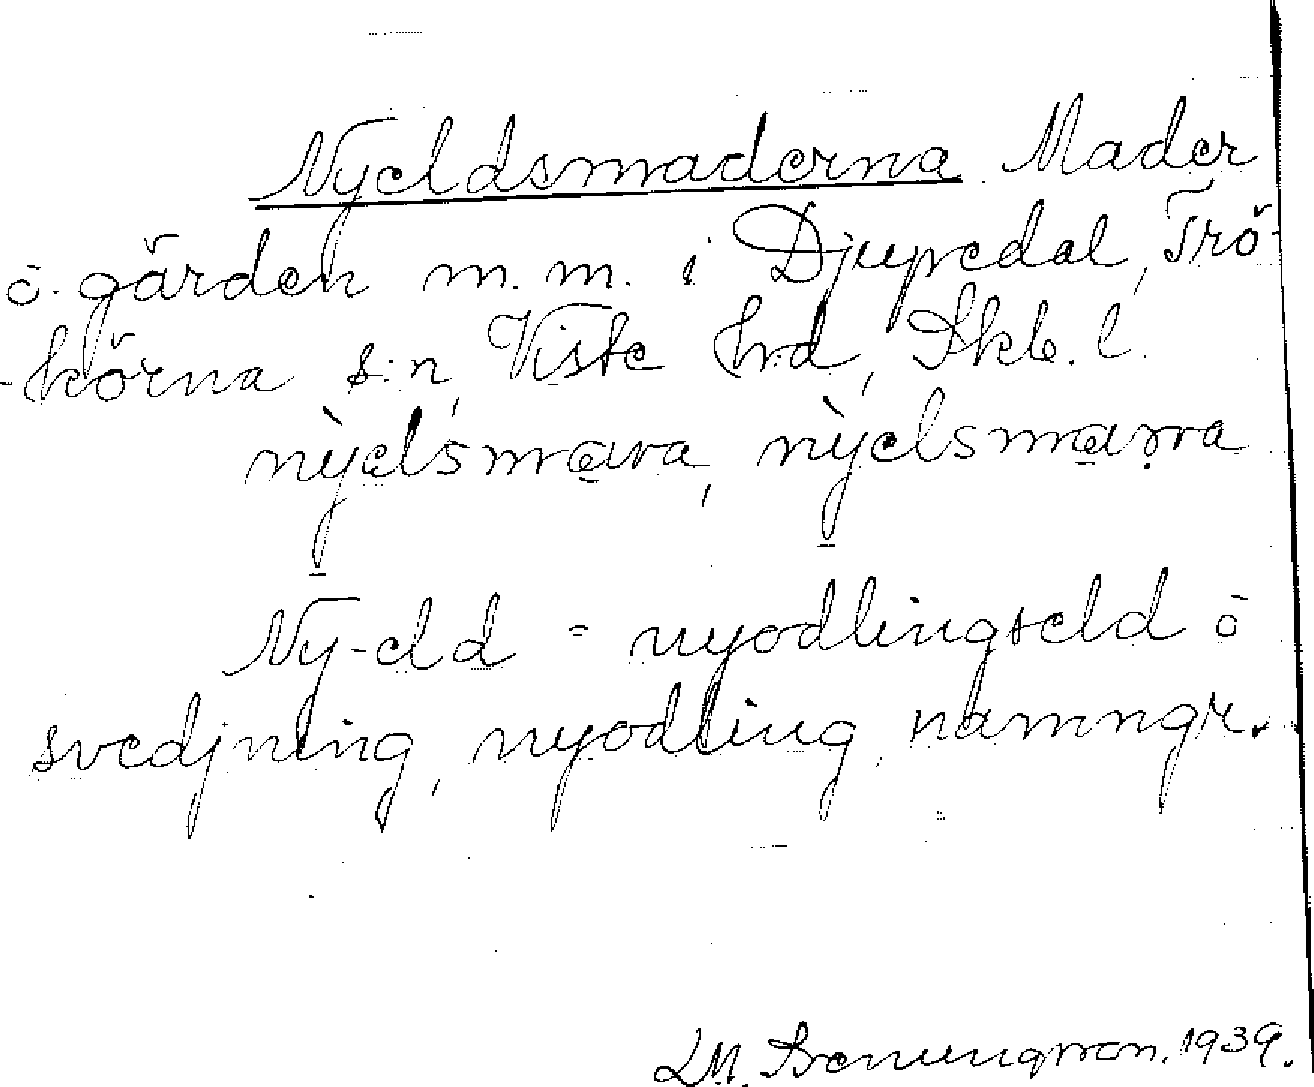 Nyeldsmaderna Mader
o. gärden m.m. i Djupedal, Trö-
-körna s:n, Viste hrd, Skb. l.
nỳel'smava, nỳelsmaṛva
Ny-eld = nyodlingseld o
svedjning, nyodling, namngr.
1939.